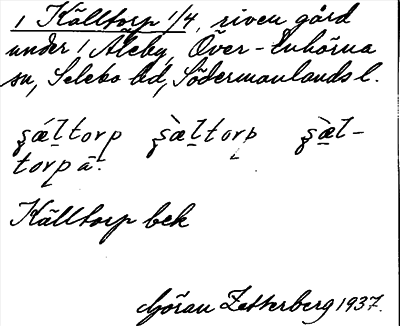 1 Källtorp 1/4, riven gård
under 1 Åleby, Över-Enhörna
sn, Selebo hd, Södermanlands l.
ʂǽltorp ʂæ̀ltorp ʂæ̀l-
torp ä.
Källtorp bek
Göran Zetterberg 1937.